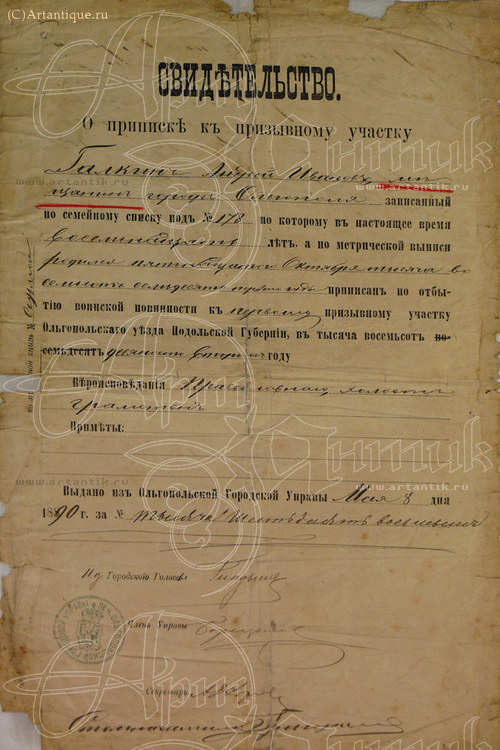 (C)Artantique.ru
СВИДѢТЕЛЬСТВО.
О припискѣ къ призывному участку
Галкинъ Андрей Ивановъ мѣ-
щанинъ города Ольгополя записанный
по семейному списку подъ № 178 по которому въ настоящее время
восемнадцать лѣтъ, а по метрической выписи
родился пятнадцатого Октября тысяча во
семьсот семьдесятъ приписанъ по отбы-
тію воинской повинности къ первому призывному участку
Ольгопольскаго уѣзда Подольской Губерніи, въ тысяча восемьсотъ во-
семьдесятъ девяносто второмъ году
Вѣроисповѣданія Православнаго, холостъ
грамотный
Примѣты:
Выдано изъ Ольгопольской Городской Управы Мая 8 дня
1890 г. за № тысяча шестьдесятъ восемь
И.д. Городского Головы
Членъ Управы
Секретарь
www.artantik.ru
Арт Антик